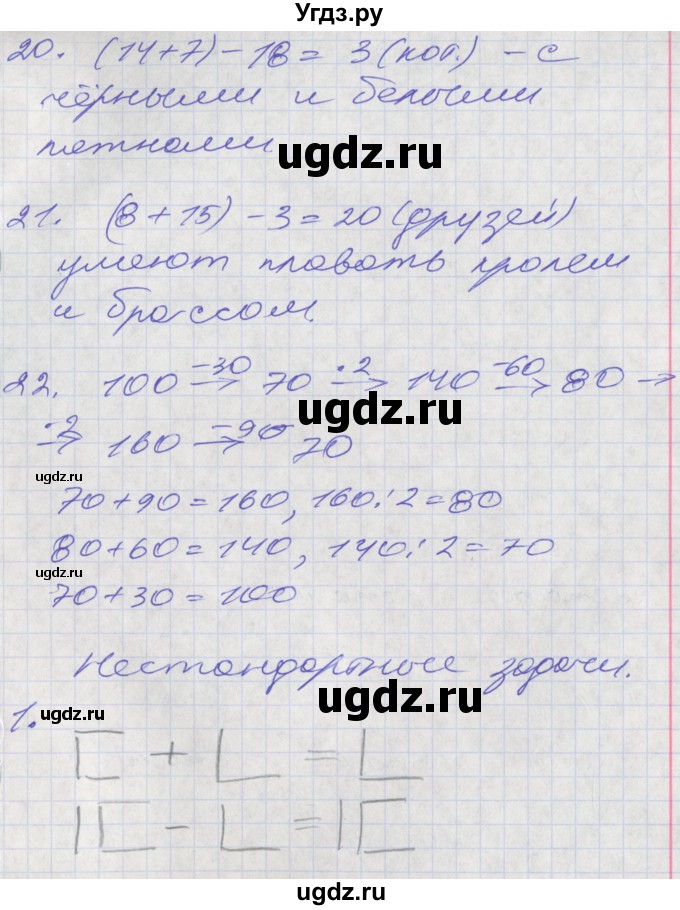 Угдз.ру
20. (14+7)-18= 3 (кот.) - с
чёрными и белыми
пятнами.
ugdz.ru
21. (8+15)-3=20 (друзей)
умеют плавать кролем
и брассом.
ugdz.ru
22. 100 -30→ 70 ·2→ 140 -60→ 80 →
·2→ 160 -90→ 70
ugdz.ru
ugdz.ru
70+90=160, 160:2=80
80+60=140, 140:2=70
70+30=100
ugdz.ru
ugdz.ru
Нестандартные задачи.
ugdz.ru
1.
ugdz.ru
+ =
- =
ugdz.ru